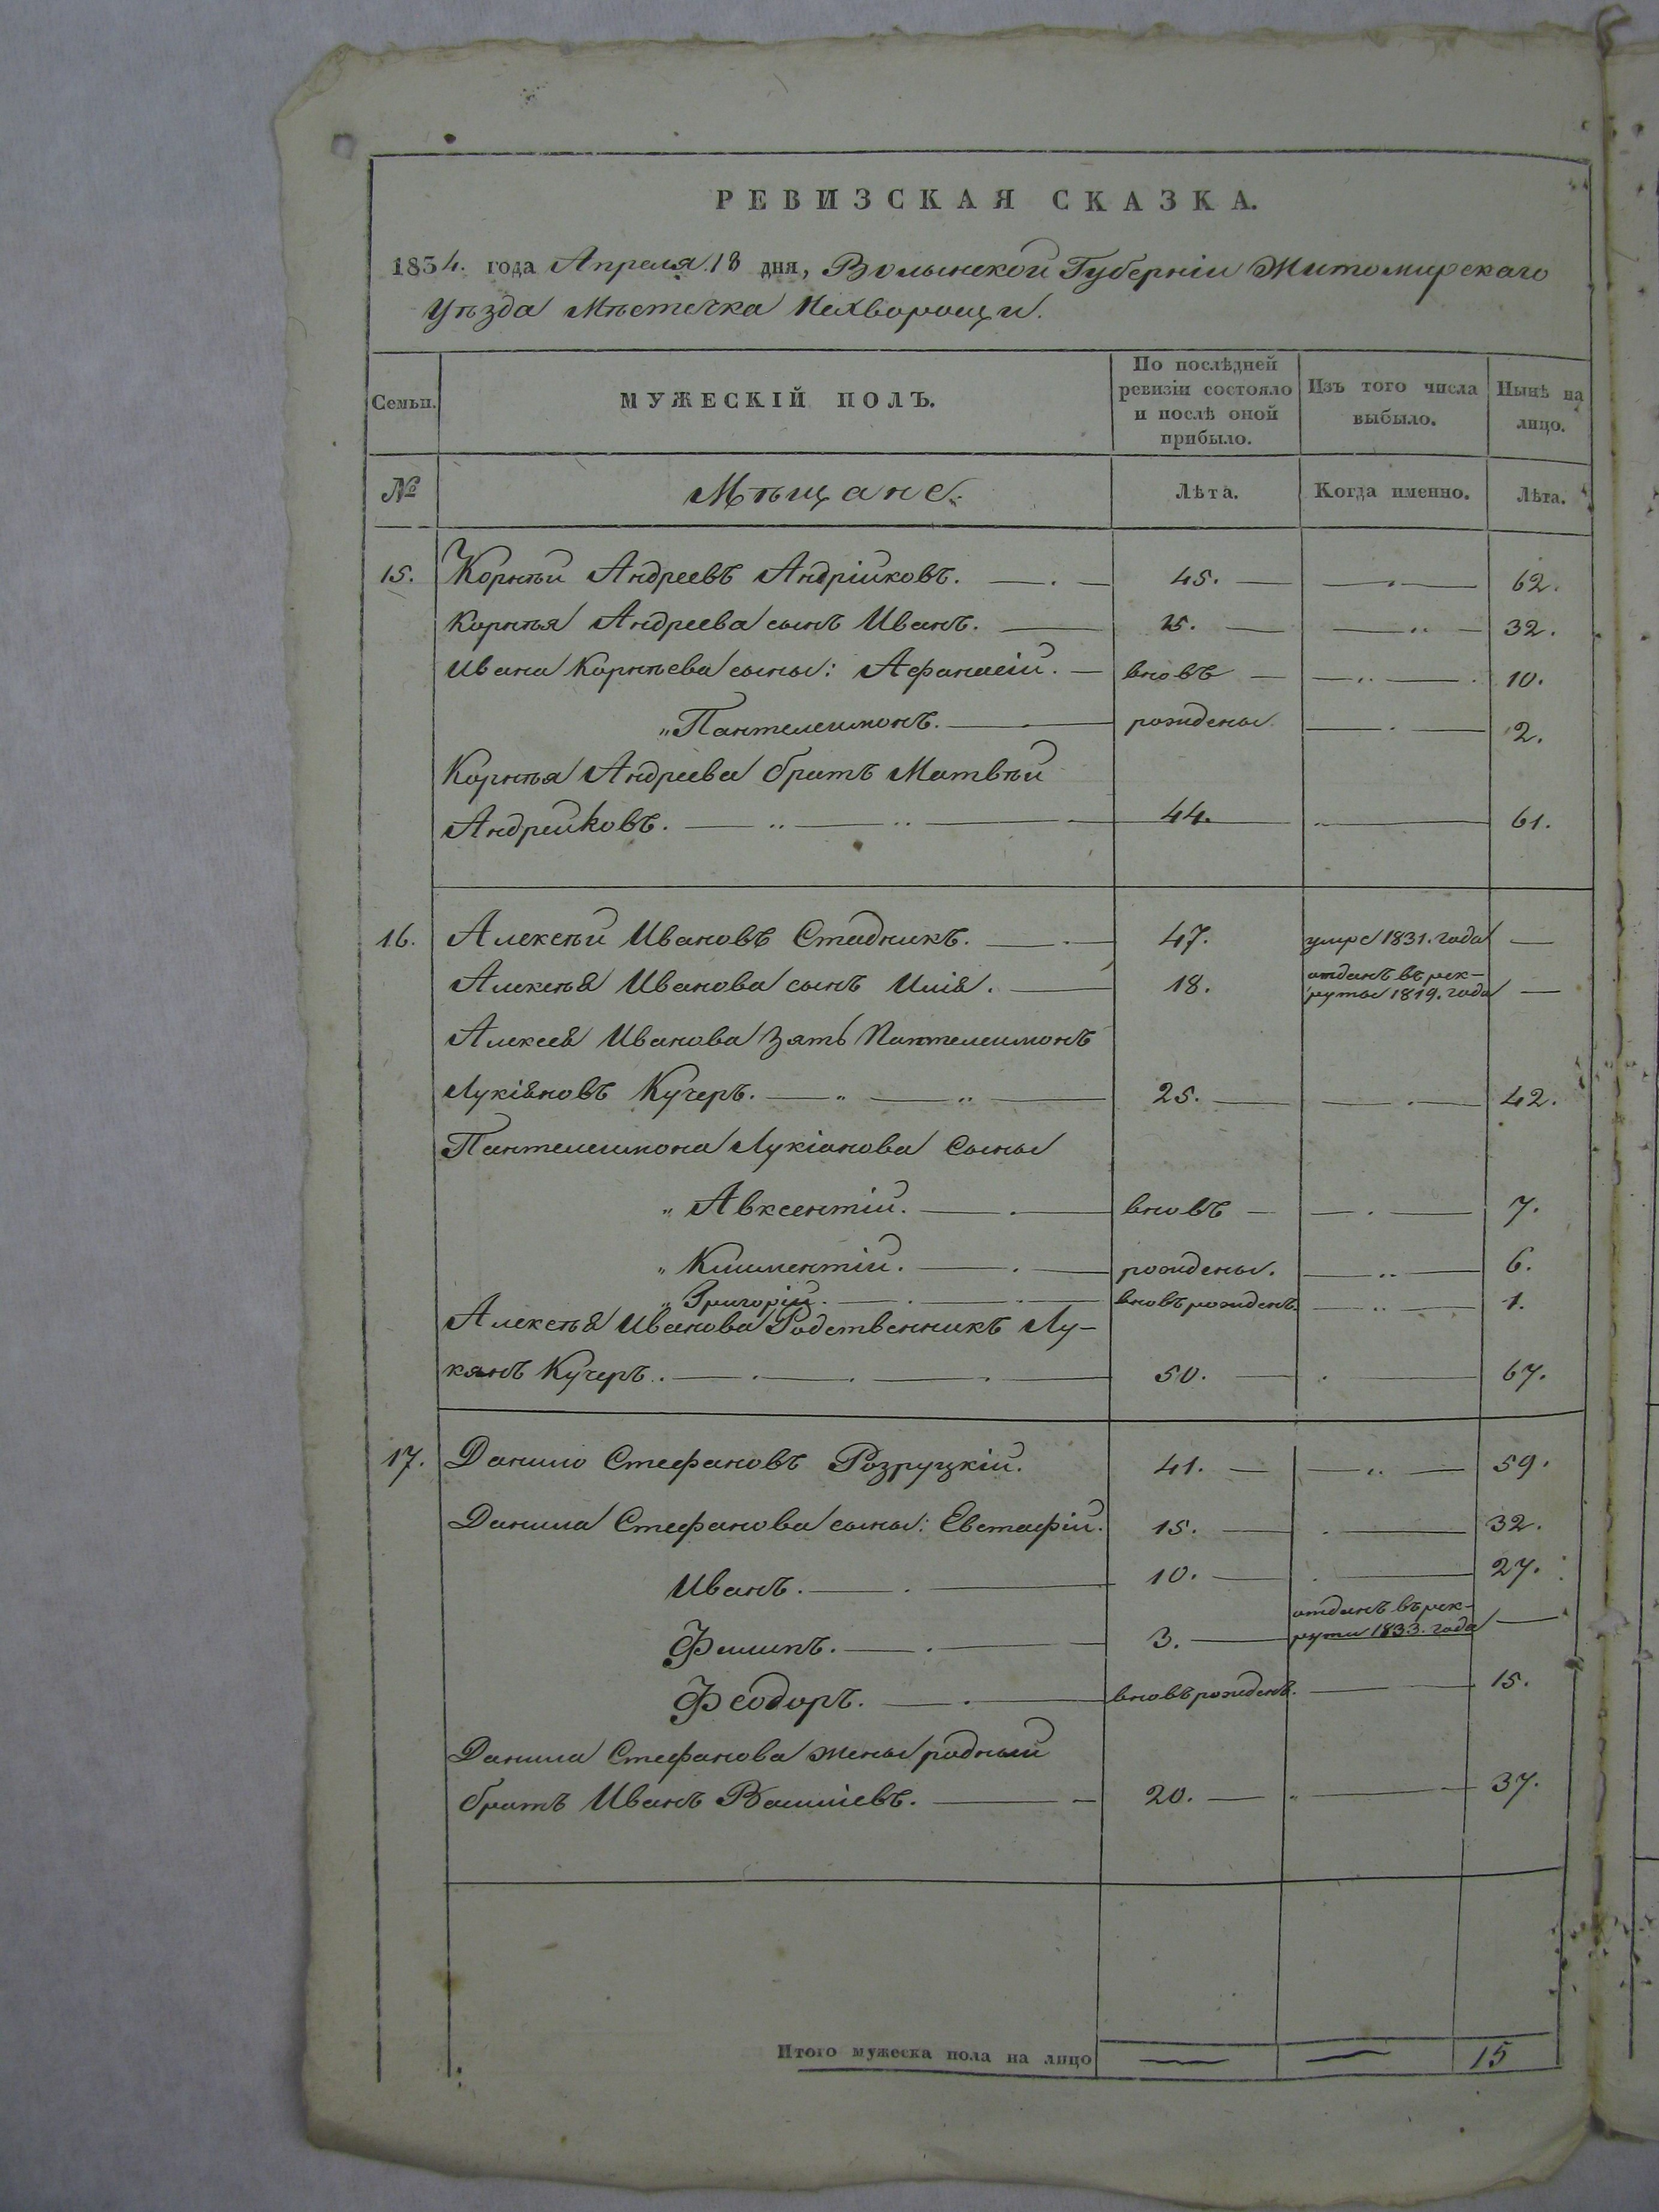 РЕВИЗСКАЯ СКАЗКА.
1834. года Апреля 18 дня, Волынской Губерніи Житомирскаго
Уѣзда Мѣстечка Нехворощи.
Семьи.
МУЖЕСКІЙ ПОЛЪ.
По послѣдней ревизіи состояло и послѣ оной прибыло.
Изъ того числа выбыло.
Нынѣ на лицо.
№ Мѣщане. Лѣта. Когда именно. Лѣта.
15. Корнѣй Андреевъ Андрійковъ. 45. 62.
Корнѣя Андреева сынъ Иванъ. 15. 32.
Ивана Корнѣева сыны: Афанасій. вновъ 10.
„Пантелеимонъ. рождены. 2.
Корнѣя Андреева братъ Матвѣй
Андрейковъ. 44. 61.
16. Алексѣй Ивановъ Стадникъ. 47. умре 1831. года
Алексѣя Иванова сынъ Илія. 18. отданъ въ рек-
руты 1819. года
Алексея Иванова зять Пантелеимонъ
Лукіяновъ Кучеръ. 25. 42.
Пантелеимона Лукіанова Сыны
„ Авксентій. вновъ 7.
„ Климентій. рождены. 6.
„ Григорій. вновъ рожденъ. 1.
Алексѣя Иванова Родственникъ Лу-
кянъ Кучеръ. 50. 67.
17. Данило Стефановъ Розруцкій. 41. 59.
Данила Стефанова сыны: Евстафій. 15. 32.
Иванъ. 10. 27.
Филипъ. 3. отданъ въ рек-
рути 1833. года
Феодоръ. вновъ рожденъ. 15.
Данила Стефанова жены родный
братъ Иванъ Василіевъ. 20. 37.
Итого мужеска пола на лицо 15